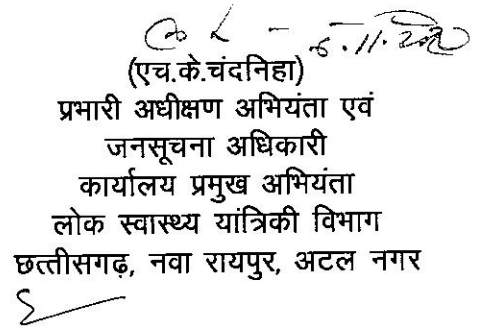 6.11.2020
(एच.के.चंदनिहा)
प्रभारी अधीक्षण अभियंता एवं
जनसूचना अधिकारी
कार्यालय प्रमुख अभियंता
लोक स्वास्थ्य यांत्रिकी विभाग
छत्तीसगढ़, नवा रायपुर, अटल नगर